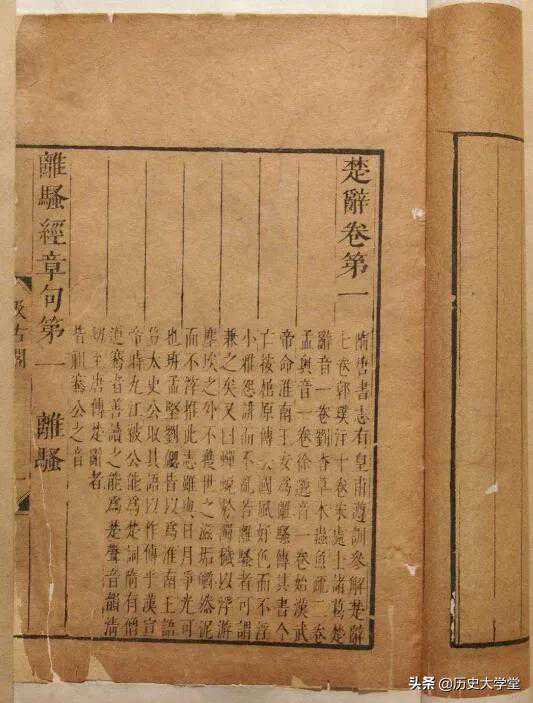 楚辭卷第一
隋唐書志有皇甫遵訓參解楚辭
七卷郭璞注十卷宋處士諸葛楚
辭音一卷劉杳草木蟲魚疏二卷
孟奧音一卷徐邈音一卷始漢武
帝命淮南王安爲離騷傳其書今
亡按屈原傳云國風好色而不淫
小雅怨誹而不亂若離騷者可謂
兼之矣又曰蟬蛻於濁穢以浮游
塵埃之外不獲世之滋垢皭然泥
而不滓推此志雖與日月爭光可
也班孟堅劉勰皆以爲淮南王語
豈太史公取其語以作傳乎漢宣
帝時九江被公能爲楚詞隋有僧
道騫者善讀之能爲楚聲音韻清
切至唐傳楚辭者
皆祖騫公之音
離騷經章句第一 離騷
汲古閣
头条 @历史大学堂